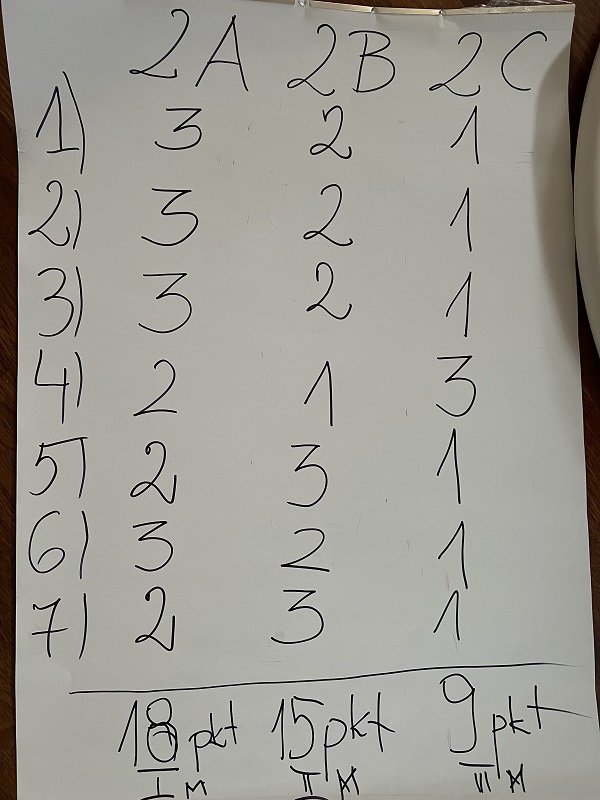 2A 2B 2C
1) 3 2 1
2) 3 2 1
3) 3 2 1
4) 2 1 3
5) 2 3 1
6) 3 2 1
7) 2 3 1
18 pkt 15 pkt 9 pkt
I M II M VI M